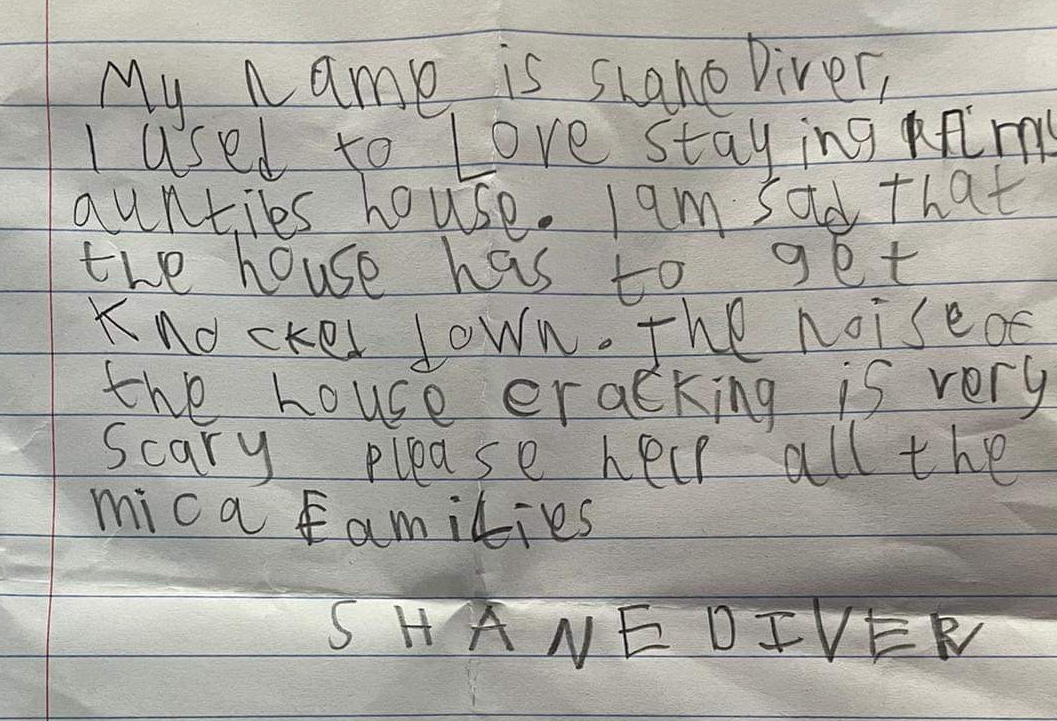 My name is Shane Diver,
I used to Love staying At my
aunties house. I am sad that
the house has to get
Knocked down. The noise of
the house cracking is very
scary please help all the
mica Families
SHANE DIVER